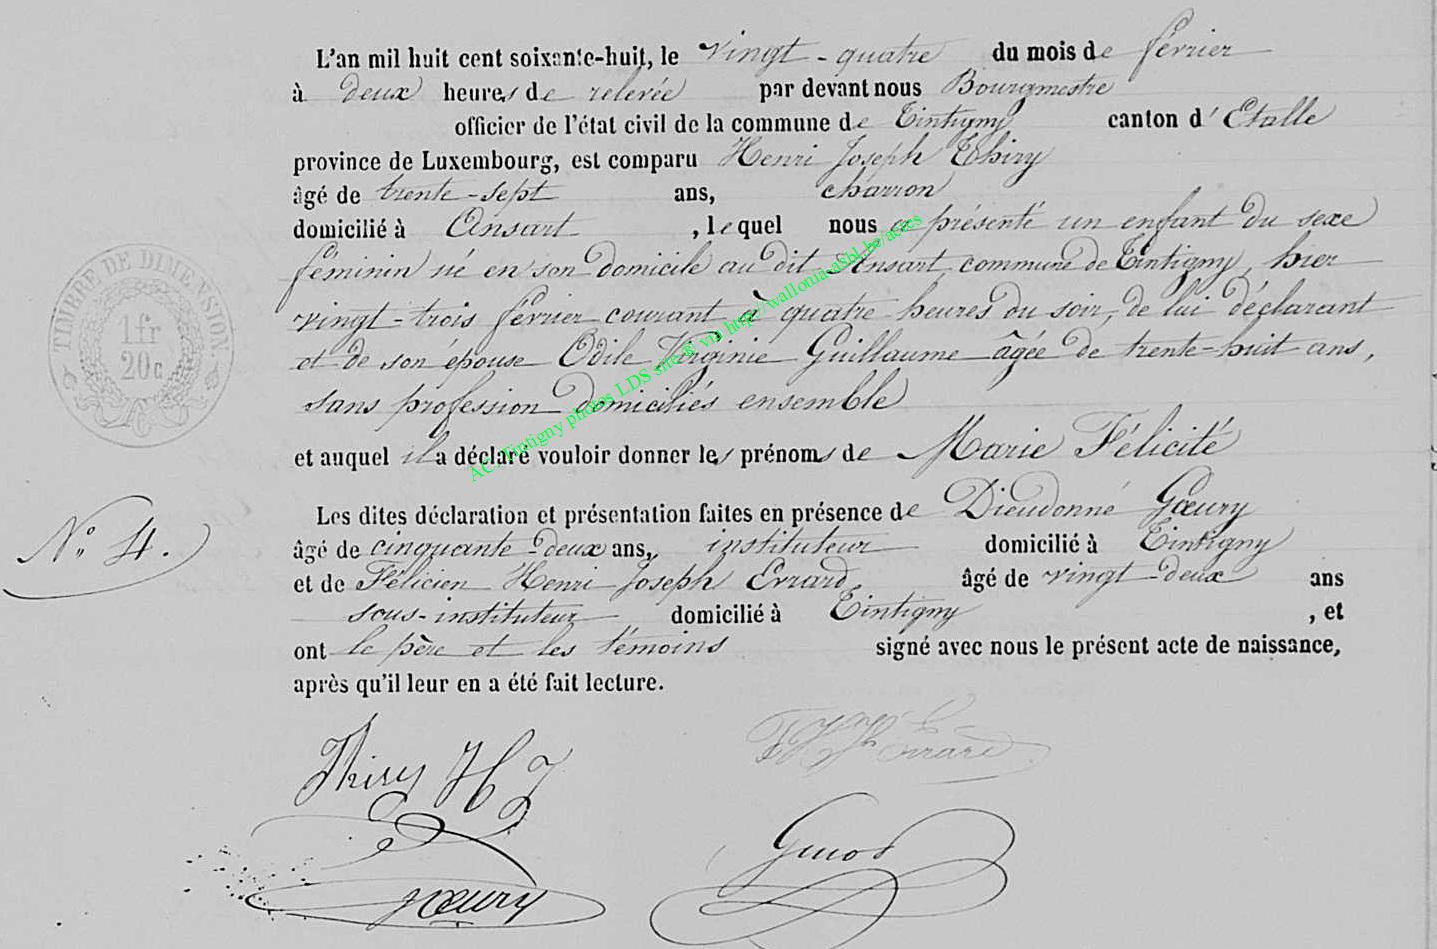 L'an mil huit cent soixante-huit, le vingt-quatre du mois de février
à deux heures de relevée par devant nous Bourgmestre
officier de l'état civil de la commune de Tintigny canton d'Etalle
province de Luxembourg, est comparu Henri Joseph Thiry
âgé de trente-sept ans, charron
domicilié à Ansart, lequel nous a présenté un enfant du sexe
féminin né en son domicile au dit Ansart commune de Tintigny, hier
vingt-trois février courant à quatre heures du soir, de lui déclarant
et de son épouse Odile Virginie Guillaume âgée de trente-huit ans,
sans profession domiciliés ensemble
et auquel il a déclaré vouloir donner les prénoms de Marie Félicité
Les dites déclaration et présentation faites en présence de Dieudonné Gœury
N° 4.
âgé de cinquante-deux ans, instituteur domicilié à Tintigny
et de Félicien Henri Joseph Errard, âgé de vingt-deux ans
sous-instituteur domicilié à Tintigny, et
ont le père et les témoins signé avec nous le présent acte de naissance,
après qu'il leur en a été fait lecture.
TIMBRE DE DIMENSION.
1 fr
20 c
AC. Tintigny photos LDS site © via http://wallonia-asbl.be/actes
Thiry H J
Errard
Gœury